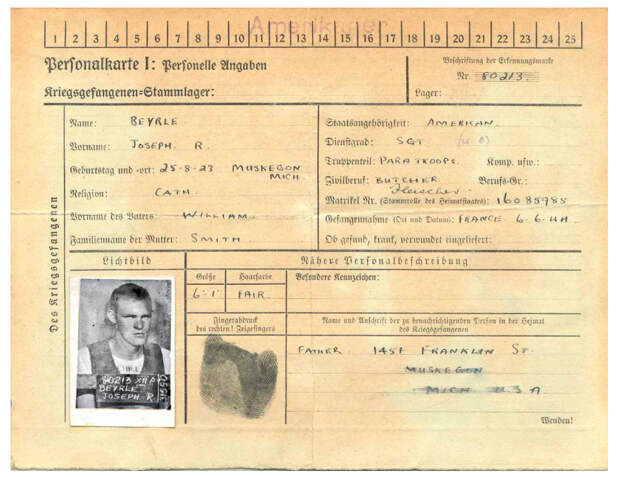 Amerikaner
1 2 3 4 5 6 7 8 9 10 11 12 13 14 15 16 17 18 19 20 21 22 23 24 25
Personalkarte I: Personelle Angaben
Kriegsgefangenen-Stammlager:
Beschriftung der Erkennungsmarke
Nr. 80213
Lager:
Des Kriegsgefangenen
Name: BEYRLE
Vorname: JOSEPH R.
Geburtstag und -ort: 25-8-23 MUSKEGON
MICH.
Religion: CATH.
Vorname des Vaters: WILLIAM.
Familienname der Mutter: SMITH
Staatsangehörigkeit: AMERICAN.
Dienstgrad: SGT
Truppenteil: PARATROOPS. Komp. usw.:
Zivilberuf: BUTCHER. Berufs-Gr.:
Fleischer
Matrikel Nr. (Stammrolle des Heimatstaates): 16085985
Gefangennahme (Ort und Datum): FRANCE 6.6.44
Ob gesund, krank, verwundet eingeliefert:
Lichtbild
80213 XII A
BEYRLE
JOSEPH. R.
Nähere Personalbeschreibung
Größe
Haarfarbe
6-1
FAIR.
Besondere Kennzeichen:
Fingerabdruck
des rechten! Zeigefingers
Name und Anschrift der zu benachrichtigenden Person in der Heimat
des Kriegsgefangenen
FATHER 1451 FRANKLIN ST.
MUSKEGON
MICH U S A
Wenden!